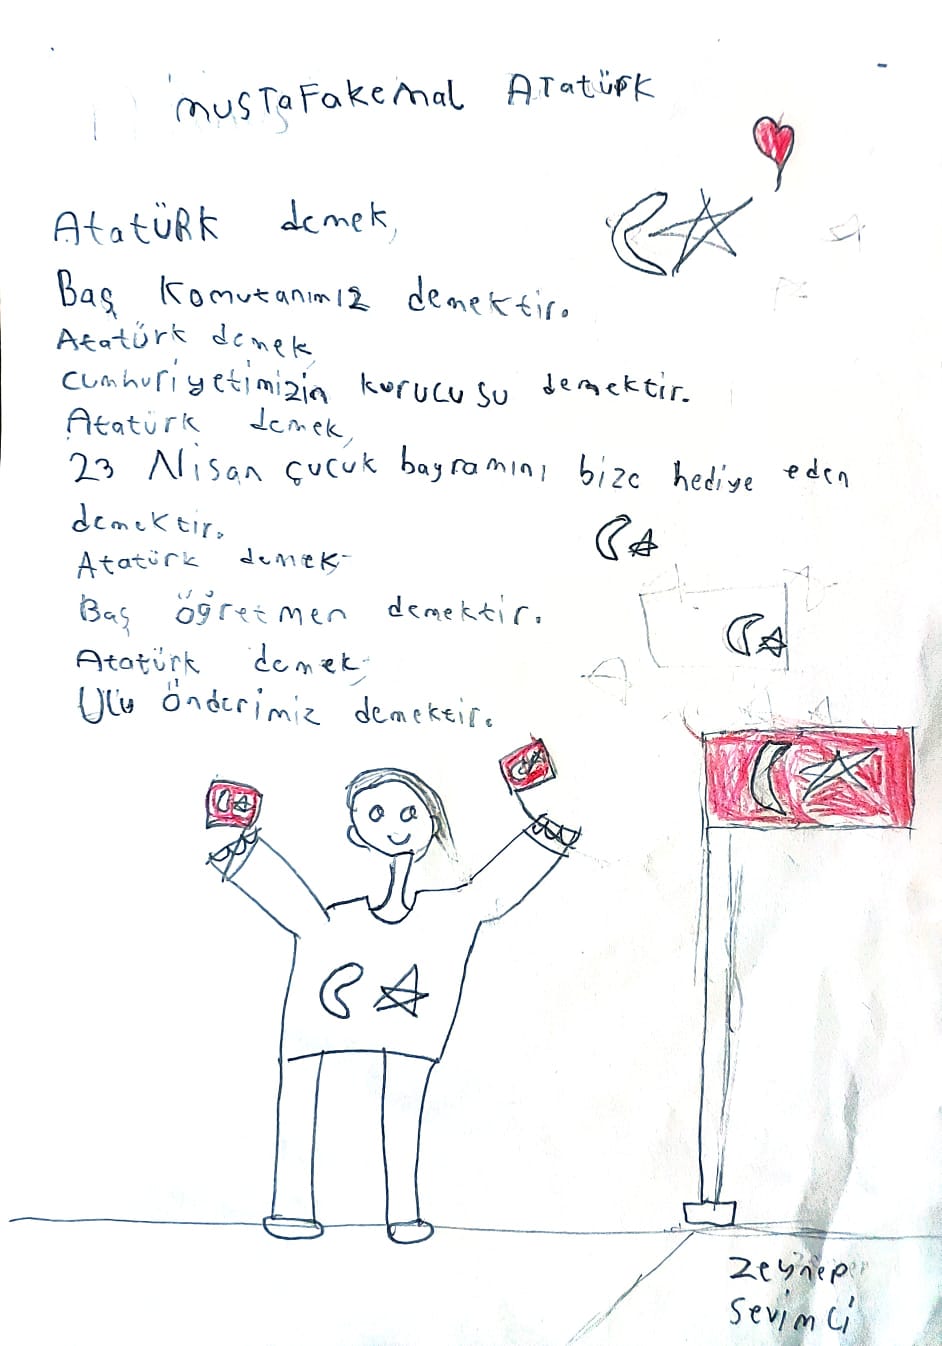 Mustafakemal Atatürk
Atatürk demek,
Baş Komutanımız demektir.
Atatürk demek,
cumhuriyetimizin kurucusu demektir.
Atatürk demek,
23 Nisan çucuk bayramını bize hediye eden
demektir.
Atatürk demek
Baş öğretmen demektir.
Atatürk demek,
Ulu Önderimiz demektir.
Zeynep
Sevimci